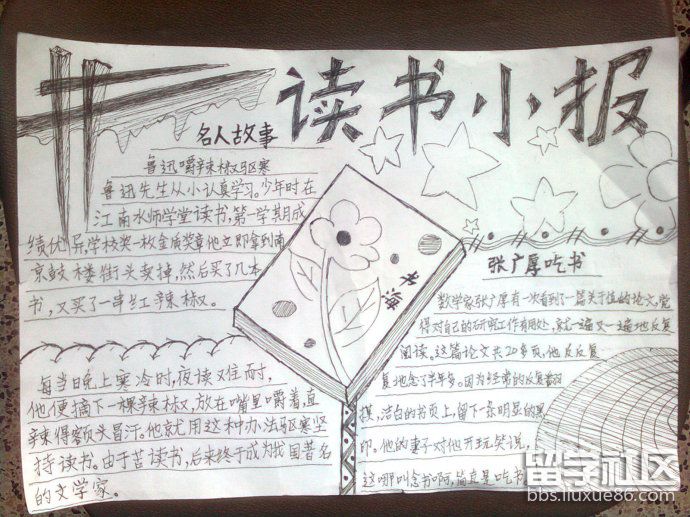 读书小报
名人故事
鲁迅嚼辣椒驱寒
鲁迅先生从小认真学习。少年时在
江南水师学堂读书,第一学期成
绩优异,学校奖一枚金质奖章他立即拿到南
京鼓楼街头卖掉,然后买了几本
书,又买了一串红辣椒。
每当晚上寒冷时,夜读难耐,
他便摘下一棵辣椒,放在嘴里嚼着,直
辣得额头冒汗。他就用这种办法驱寒坚
持读书。由于苦读书,后来终于成为我国著名
的文学家。
书海
张广厚吃书
数学家张广厚有一次看到了一篇关于值的论文,觉
得对自己的研究工作有用处,就一遍又一遍地反复
阅读。这篇论文共20多页,他反反复
复地念了半年多。因为经常的反复翻
摸,洁白的书页上,留下一条明显的黑
印。他的妻子对他开玩笑说,
这哪叫念书啊,简直是吃书
留学社区
bbs.liuxue86.com